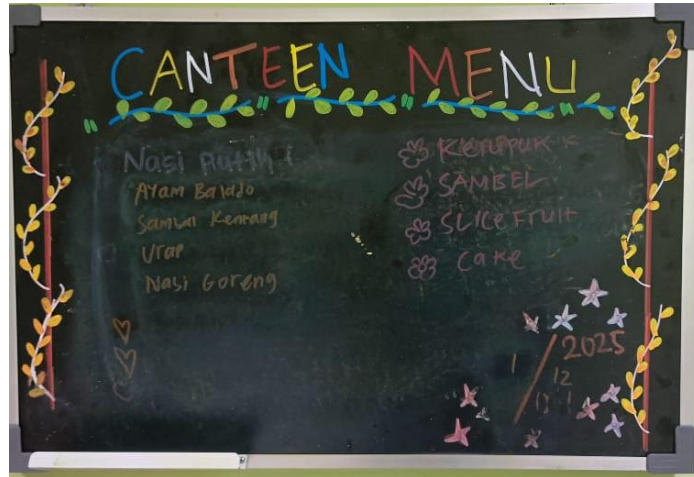 CANTEEN MENU
Nasi Putih
Ayam Balado
Sambal Kentang
Urap
Nasi Goreng
Kerupuk
SAMBEL
SLICE FRUIT
Cake
1 / 2025
12